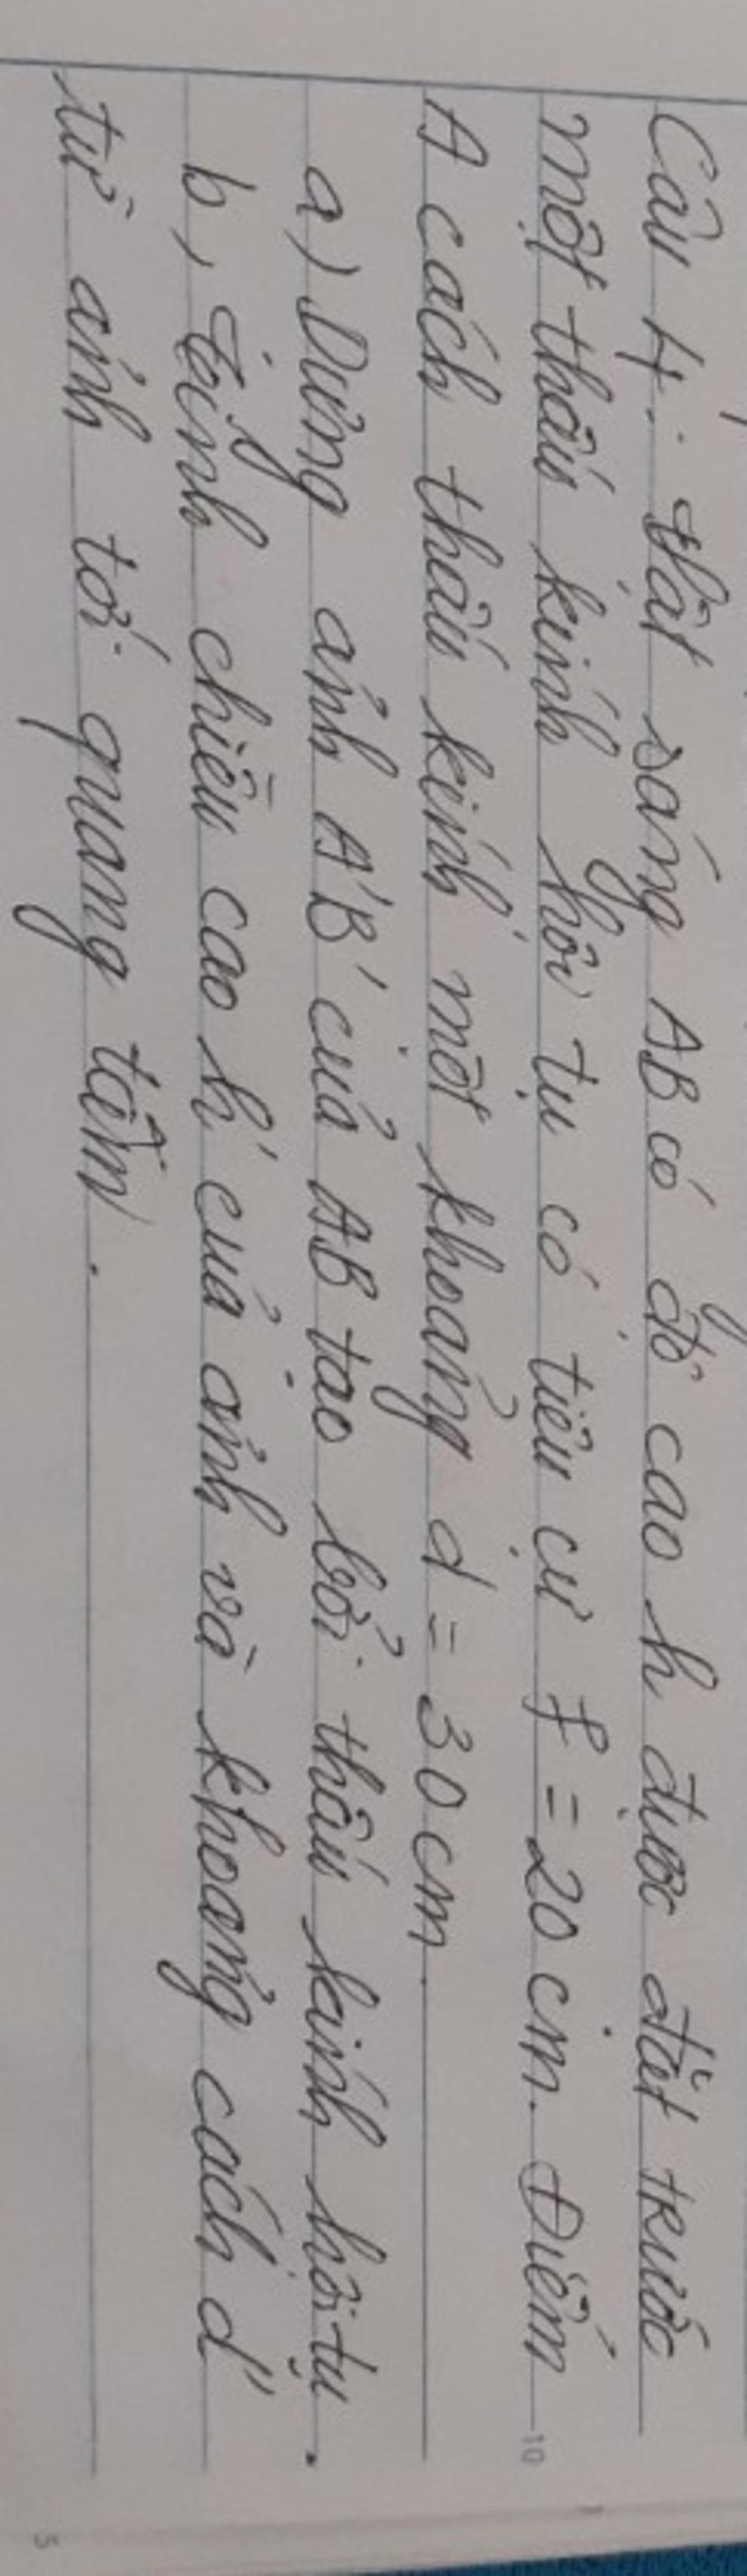 Câu 4: Vật sáng AB có độ cao h được đặt trước
một thấu kính hội tụ có tiêu cự f = 20 cm. Điểm
A cách thấu kính một khoảng d = 30 cm.
a) Dựng ảnh A'B' của AB tạo bởi thấu kính hội tụ.
b, Tính chiều cao h' của ảnh và khoảng cách d'
từ ảnh tới quang tâm.
10
5